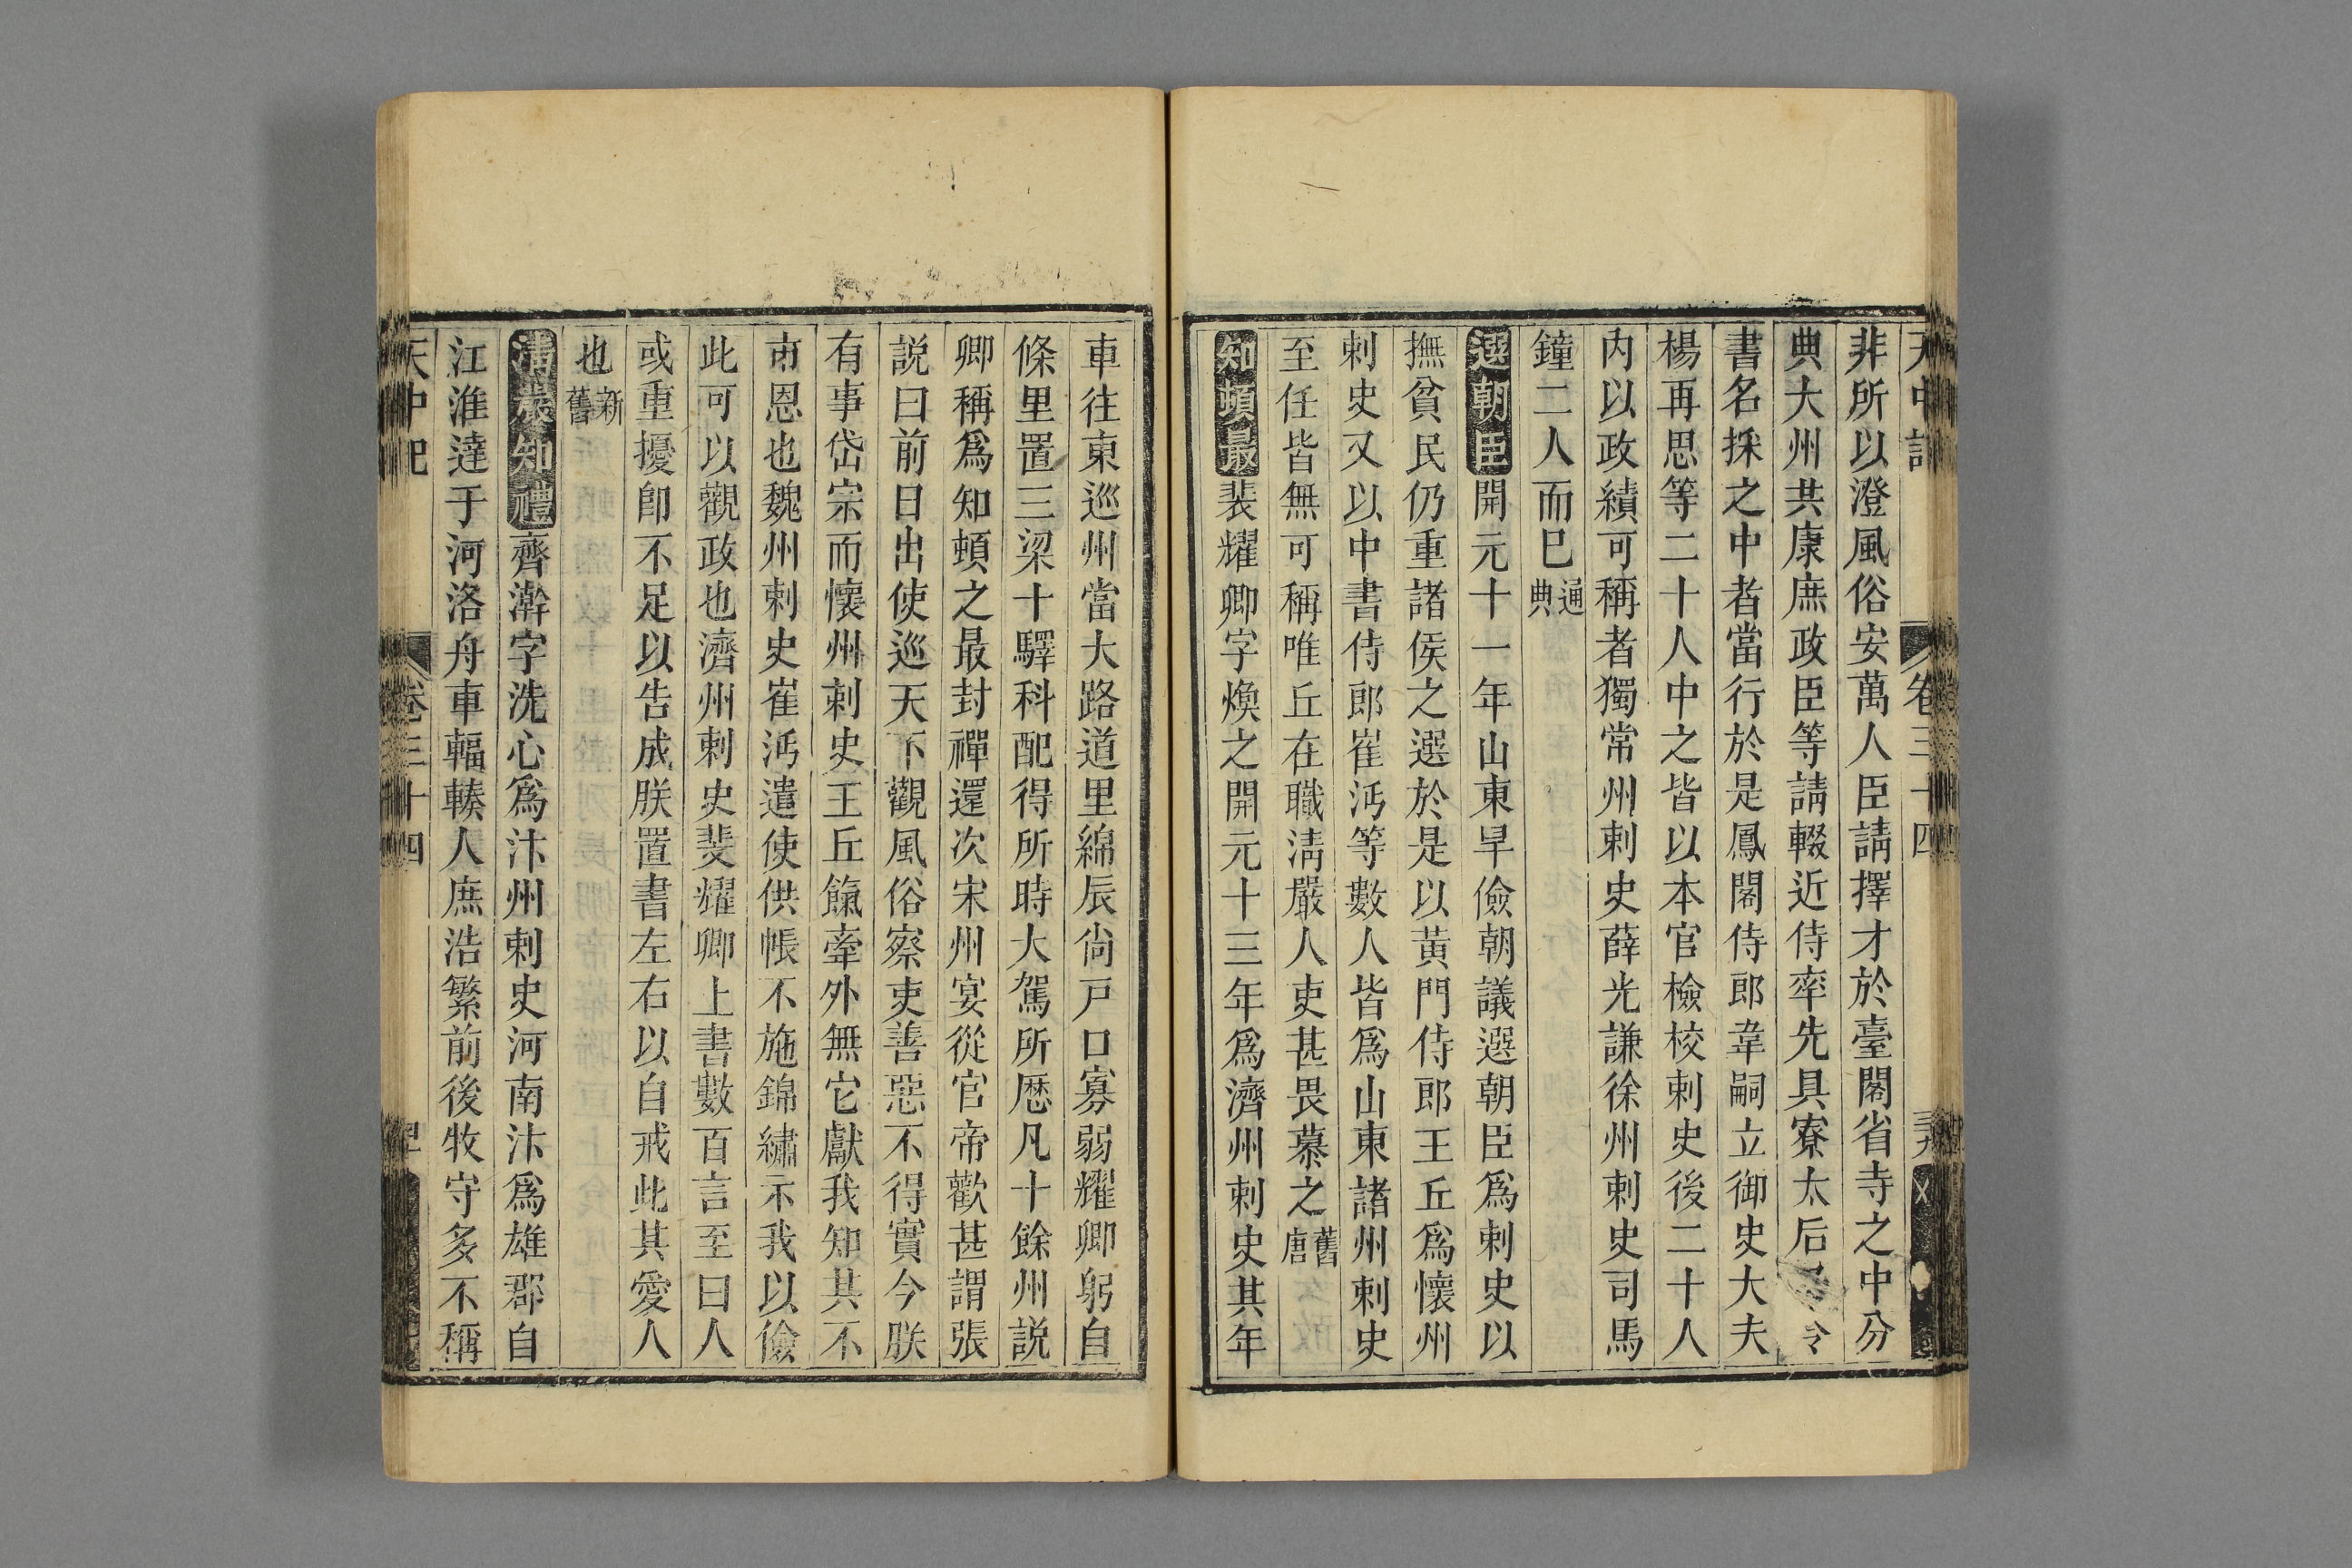 天中記 卷三十四
非所以澄風俗安萬人臣請擇才於臺閣省寺之中分
典大州共康庶政臣等請輟近侍率先具寮太后令
書名採之中者當行於是鳳閣侍郎韋嗣立御史大夫
楊再思等二十人中之皆以本官檢校剌史後二十人
内以政績可稱者獨常州剌史薛光謙徐州剌史司馬
鐘二人而巳通典
選朝臣開元十一年山東旱儉朝議選朝臣爲剌史以
撫貧民仍重諸侯之選於是以黃門侍郎王丘爲懷州
剌史又以中書侍郎崔沔等數人皆爲山東諸州剌史
至任皆無可稱唯丘在職淸嚴人吏甚畏慕之舊唐
知頓最裴耀卿字煥之開元十三年爲濟州剌史其年
車往東巡州當大路道里綿辰尙戸口寡弱耀卿躬自
條里置三梁十驛科配得所時大駕所歷凡十餘州説
卿稱爲知頓之最封禪還次宋州宴從官帝歡甚謂張
説曰前日出使巡天下觀風俗察吏善惡不得實今朕
有事岱宗而懷州剌史王丘餼牽外無它獻我知其不
市恩也魏州剌史崔沔遣使供帳不施錦繡示我以儉
此可以觀政也濟州剌史斐耀卿上書數百言至曰人
或重擾卽不足以告成朕置書左右以自戒此其愛人
也新舊
淸嚴知禮齊澣字洗心爲汴州剌史河南汴爲雄郡自
江淮達于河洛舟車輻輳人庶浩繁前後牧守多不稱
天中記 卷三十四